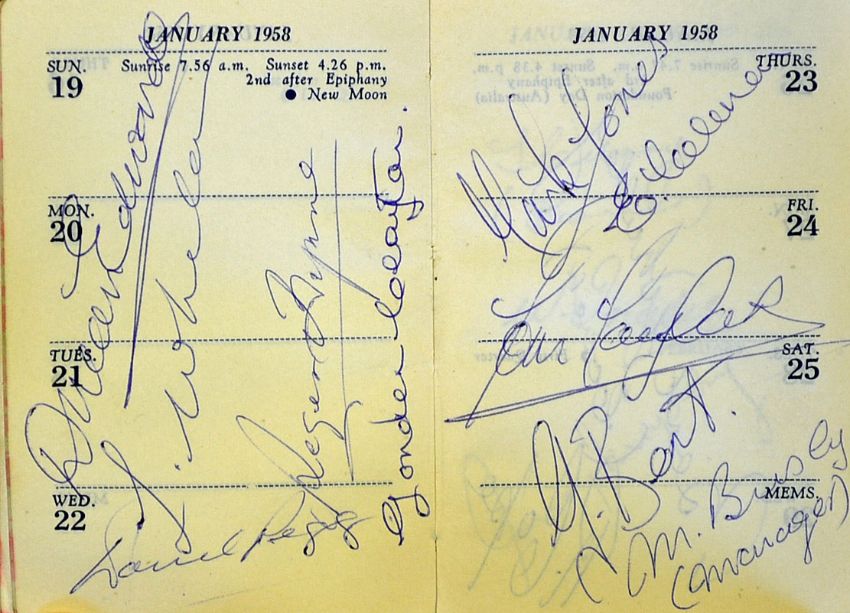 JANUARY 1958
SUN. 19
Sunrise 7.56 a.m. Sunset 4.26 p.m.
2nd after Epiphany
● New Moon
MON. 20
TUES. 21
WED. 22
Duncan Edwards
L. Whelan
Roger Byrne
Gordon Clayton.
David Pegg
JANUARY 1958
THURS. 23
FRI. 24
SAT. 25
MEMS.
Mark Jones
E. Coleman
Tom Taylor
G. Bent.
M. Busby
(manager)